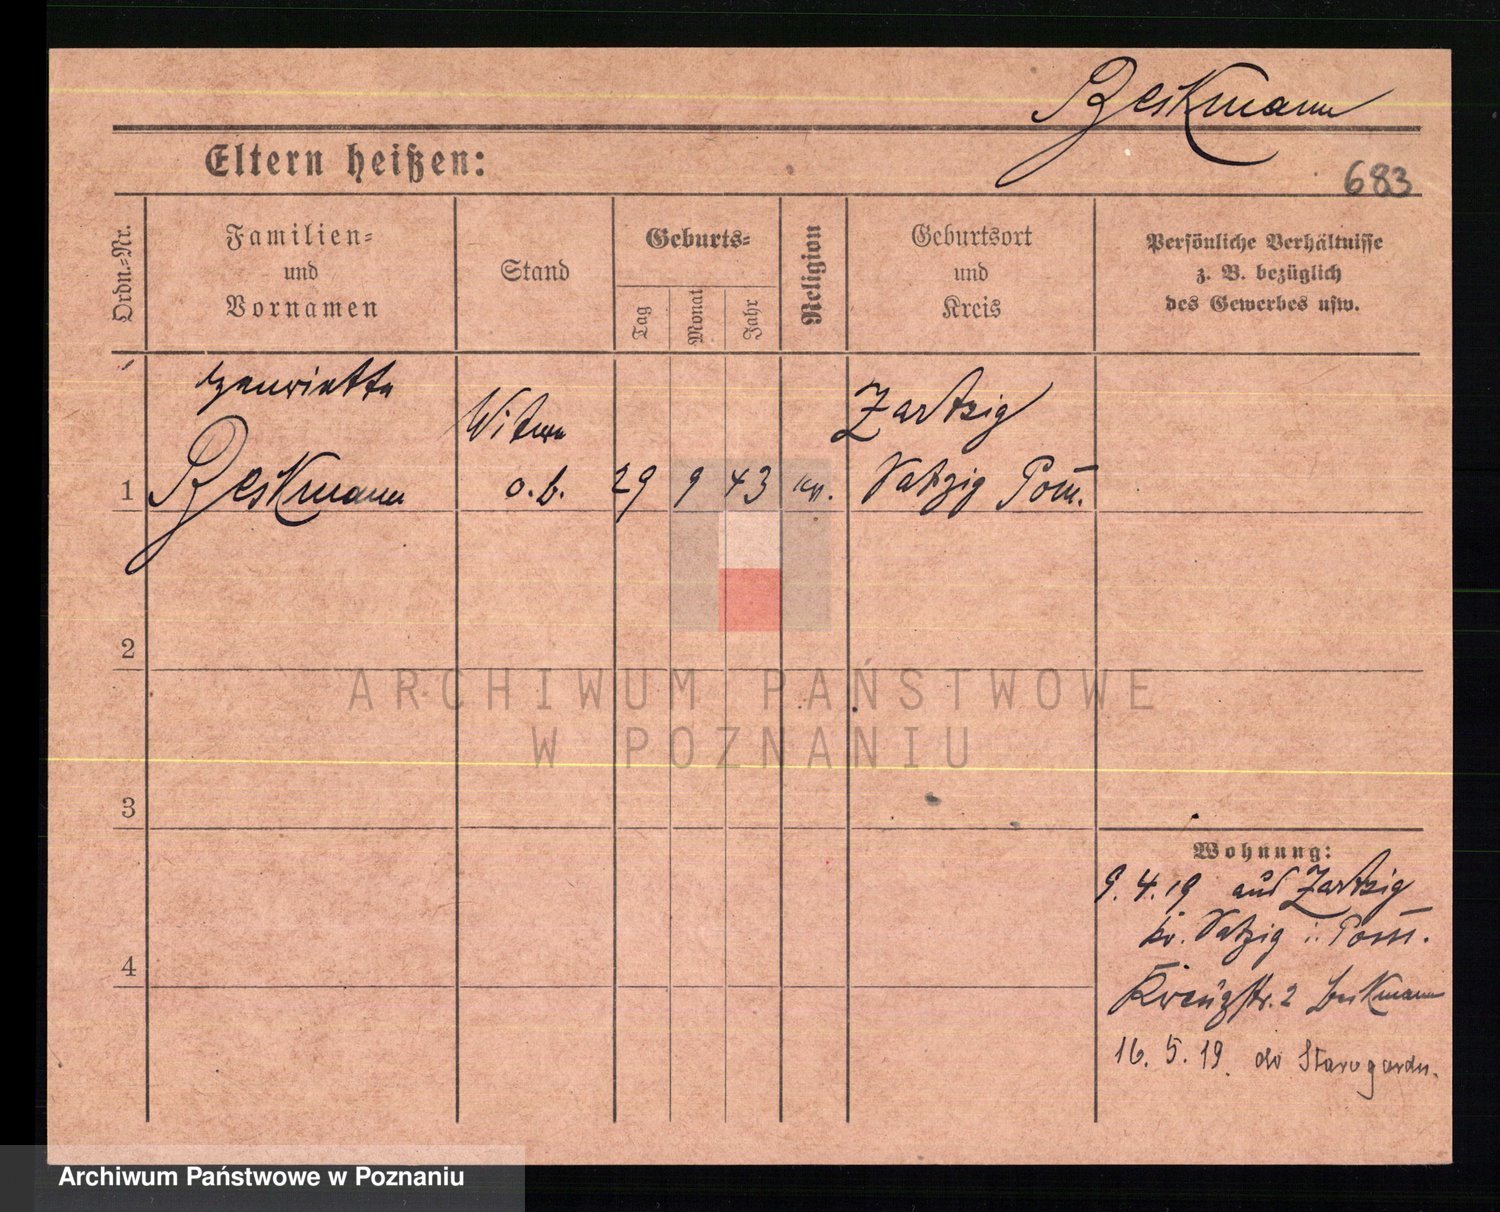 Beskmann
Eltern heißen:
683
Ordn.-Nr.
Familien-
und
Vornamen
Stand
Geburts-
Tag
Monat
Jahr
Religion
Geburtsort
und
Kreis
Persönliche Verhältnisse
z. B. bezüglich
des Gewerbes usw.
Henriette
Witwe
Zartzig
1 Beskmann o.b. 29 9 43 ev. Satzig Pom.
2
ARCHIWUM PAŃSTWOWE
W POZNANIU
3
Wohnung:
9.4.19 aus Zartzig
Kr. Satzig i. Pom.
4
Kreuzstr. 2 Beskmann
16.5.19 do Starogardu.
Archiwum Państwowe w Poznaniu